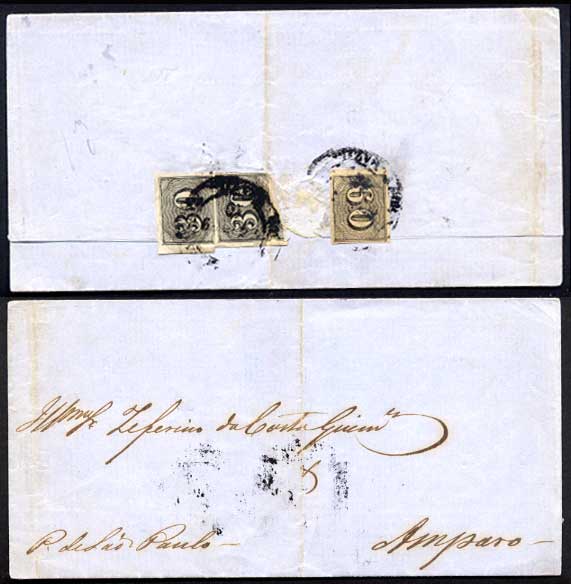 30 30 30
Illmo Sr Zeferino da Costa Guimes
P. de São Paulo
Amparo